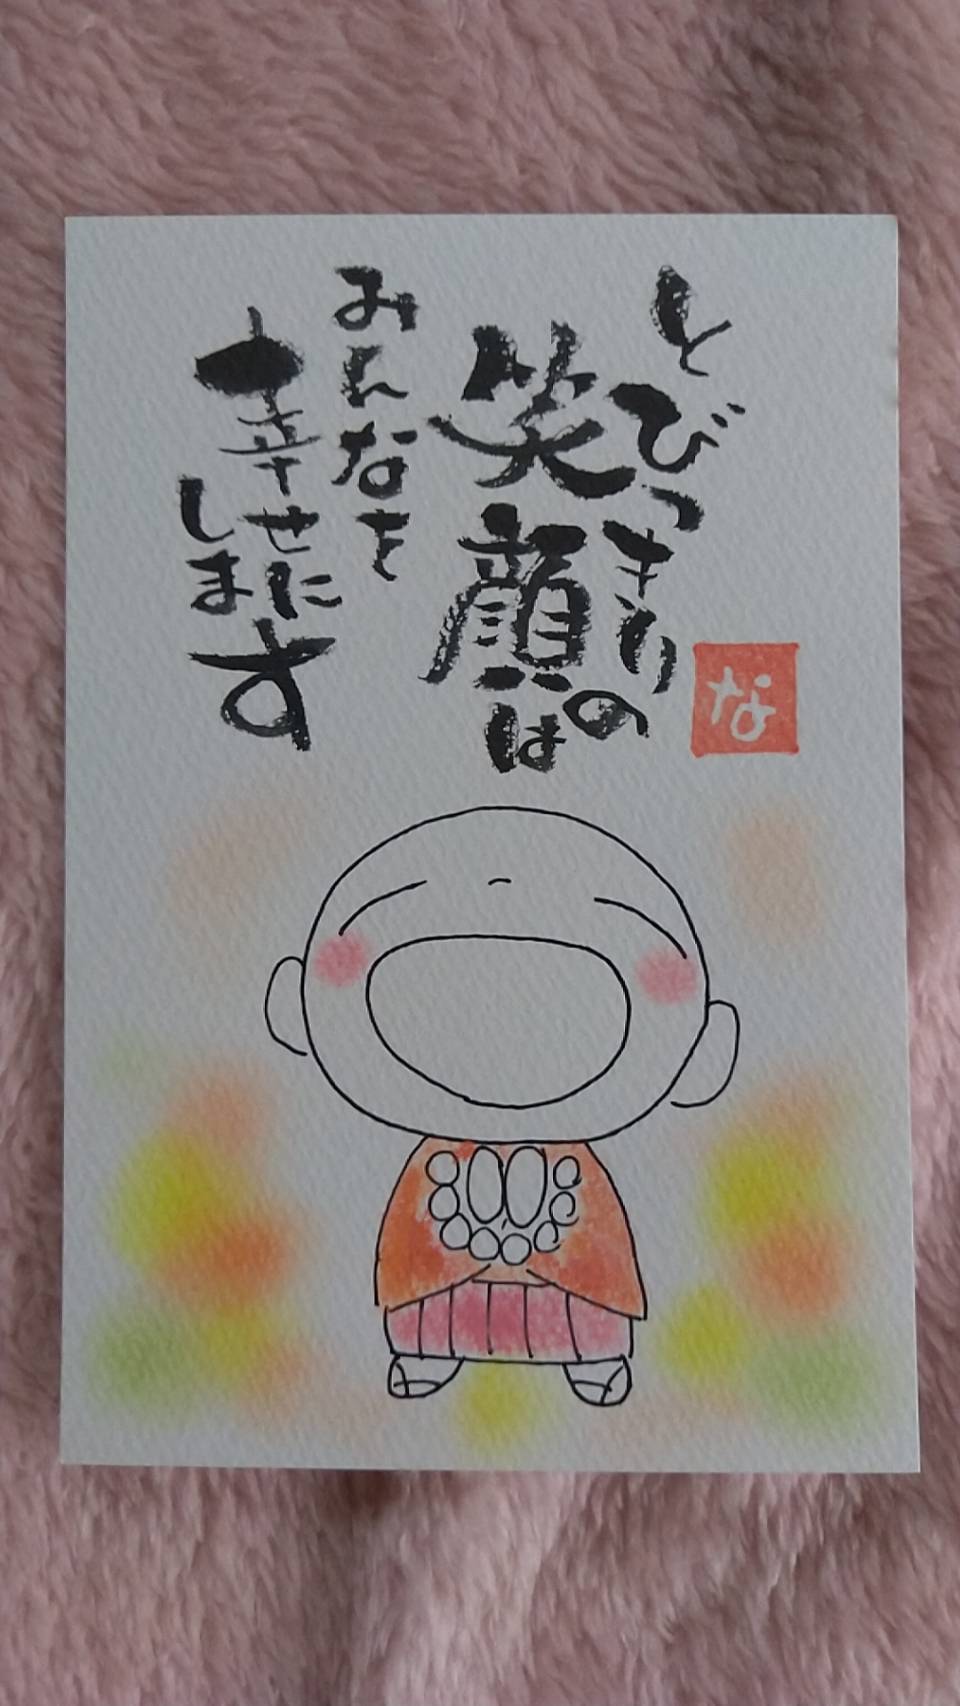 とびっきりの
笑顔は
みんなを
幸せに
します
な